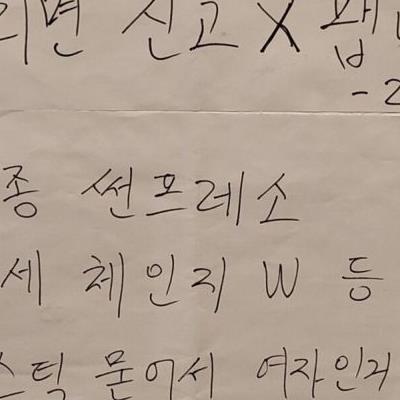 리면 신고 X 팹
-2
종 썬프레소
세 체인지 W 등
스틱 묻어서 여자인거